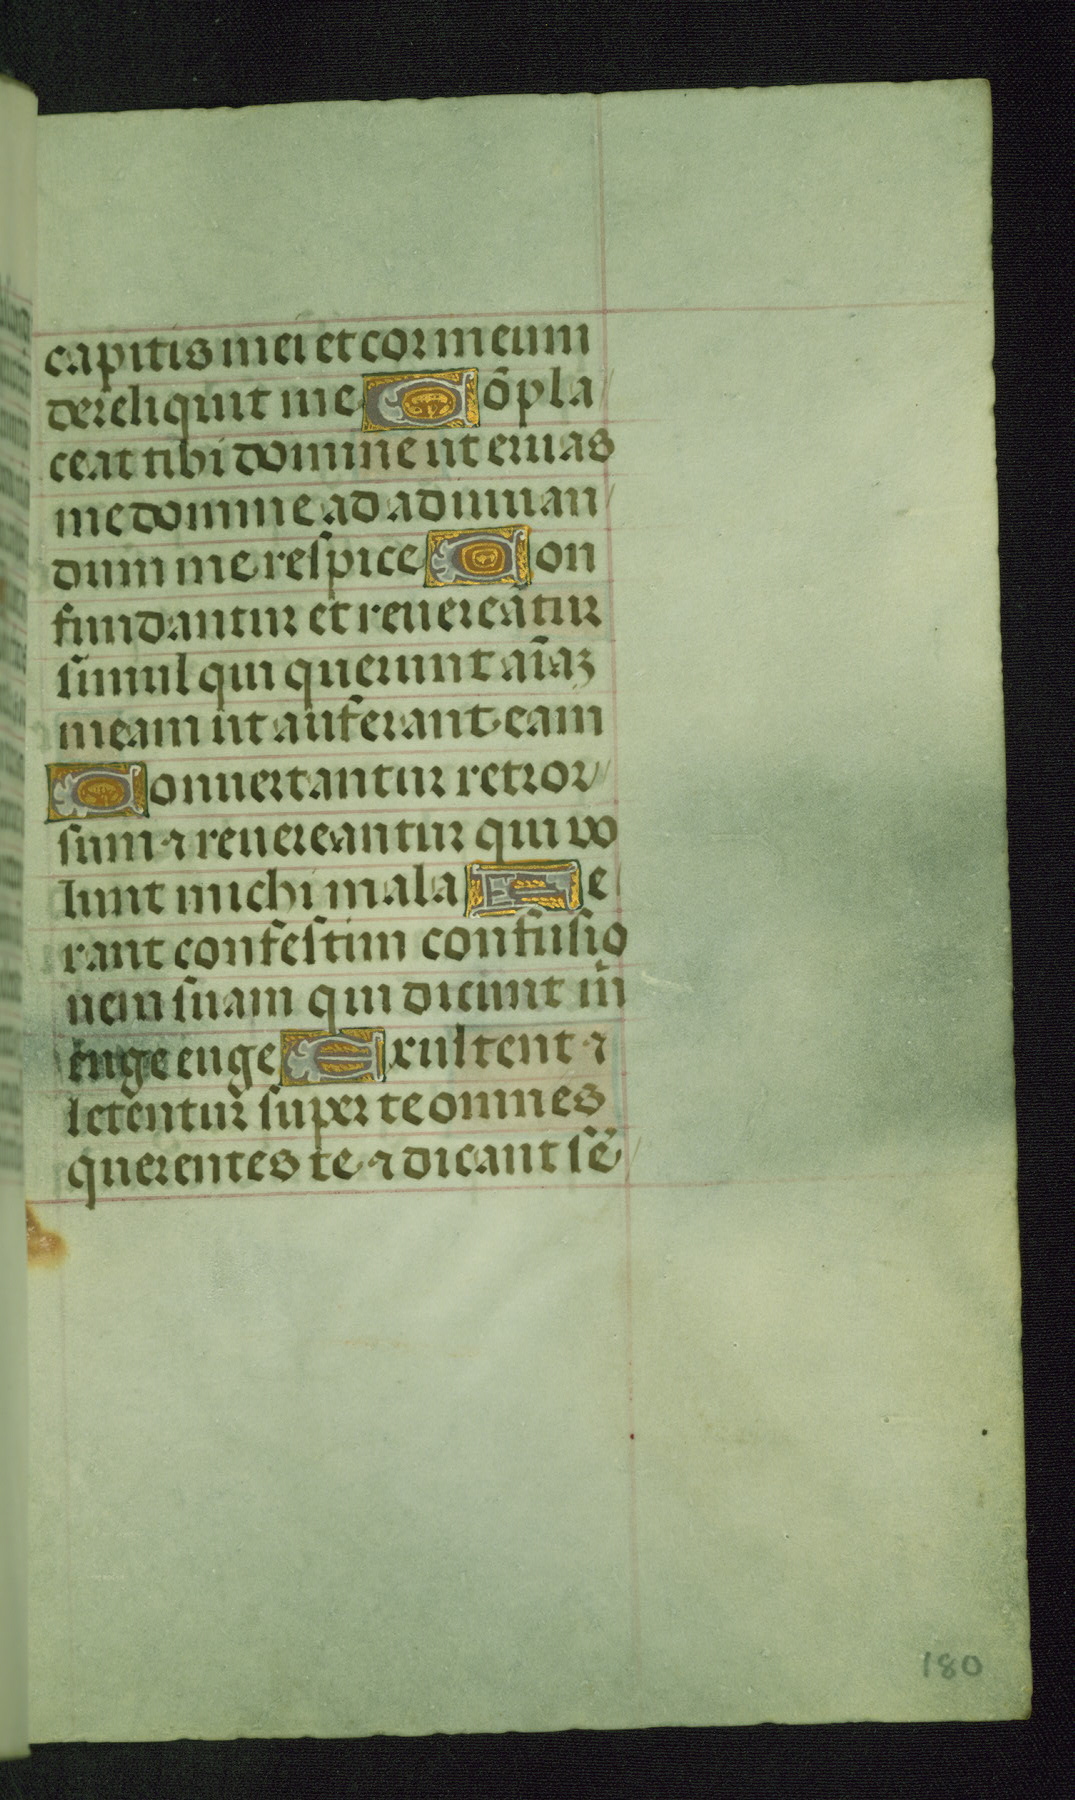 capitis mei et cor meum
dereliquit me Cõpla
ceat tibi domine ut eruas
me domine ad adiuuan
dum me respice Con
fundantur et reuereãtur
simul qui querunt aĩaꝫ
meam ut auferant eam
Conuertantur retror
sum ⁊ reuereantur qui vo
lunt michi mala Fe
rant confestim confusio
nem suam qui dicunt m̃
Euge euge Exultent ⁊
letentur super te omnes
querentes te ⁊ dicant sẽ
180